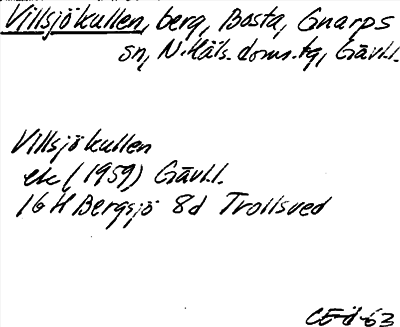 Villsjökullen, berg, Bosta, Gnarps
sn, N. Häls. doms.tg, Gävl.l.
Villsjökullen
ek (1959) Gävl.l.
16 H Bergsjö 8d Trollsved
CE-ö-63